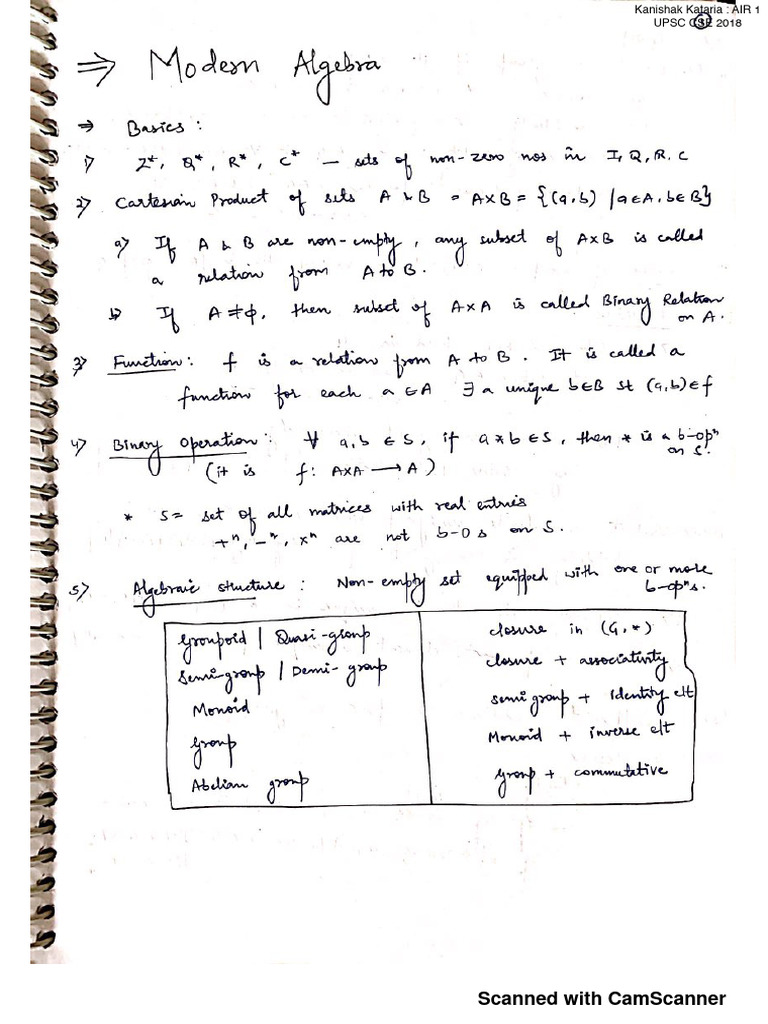 Kanishak Kataria : AIR 1
UPSC CSE 2018
⇒ Modern Algebra
⇒ Basics :
1) Z*, Q*, R*, C* — sets of non-zero nos in I, Q, R, C
2) Cartesian Product of sets A & B = A×B = {(a,b) / a∈A, b∈B}
a) If A & B are non-empty, any subset of A×B is called
a relation from A to B.
b) If A≠ϕ, then subset of A×A is called Binary Relation
on A.
3) Function : f is a relation from A to B. It is called a
function for each a∈A ∃ a unique b∈B st (a,b)∈f
4) Binary Operation : ∀ a,b ∈ S, if a*b ∈ S, then * is a b-opⁿ
on S.
(it is f: A×A → A)
* S = set of all matrices with real entries
+ⁿ, -ⁿ, xⁿ are not b-0s on S.
5) Algebraic structure : Non-empty set equipped with one or more
b-opⁿs.
Groupoid | Quasi-group closure in (G,*)
Semi-group / Demi-group closure + associativity
Monoid semi group + Identity elt
Group Monoid + inverse elt
Abelian group group + commutative
Scanned with CamScanner